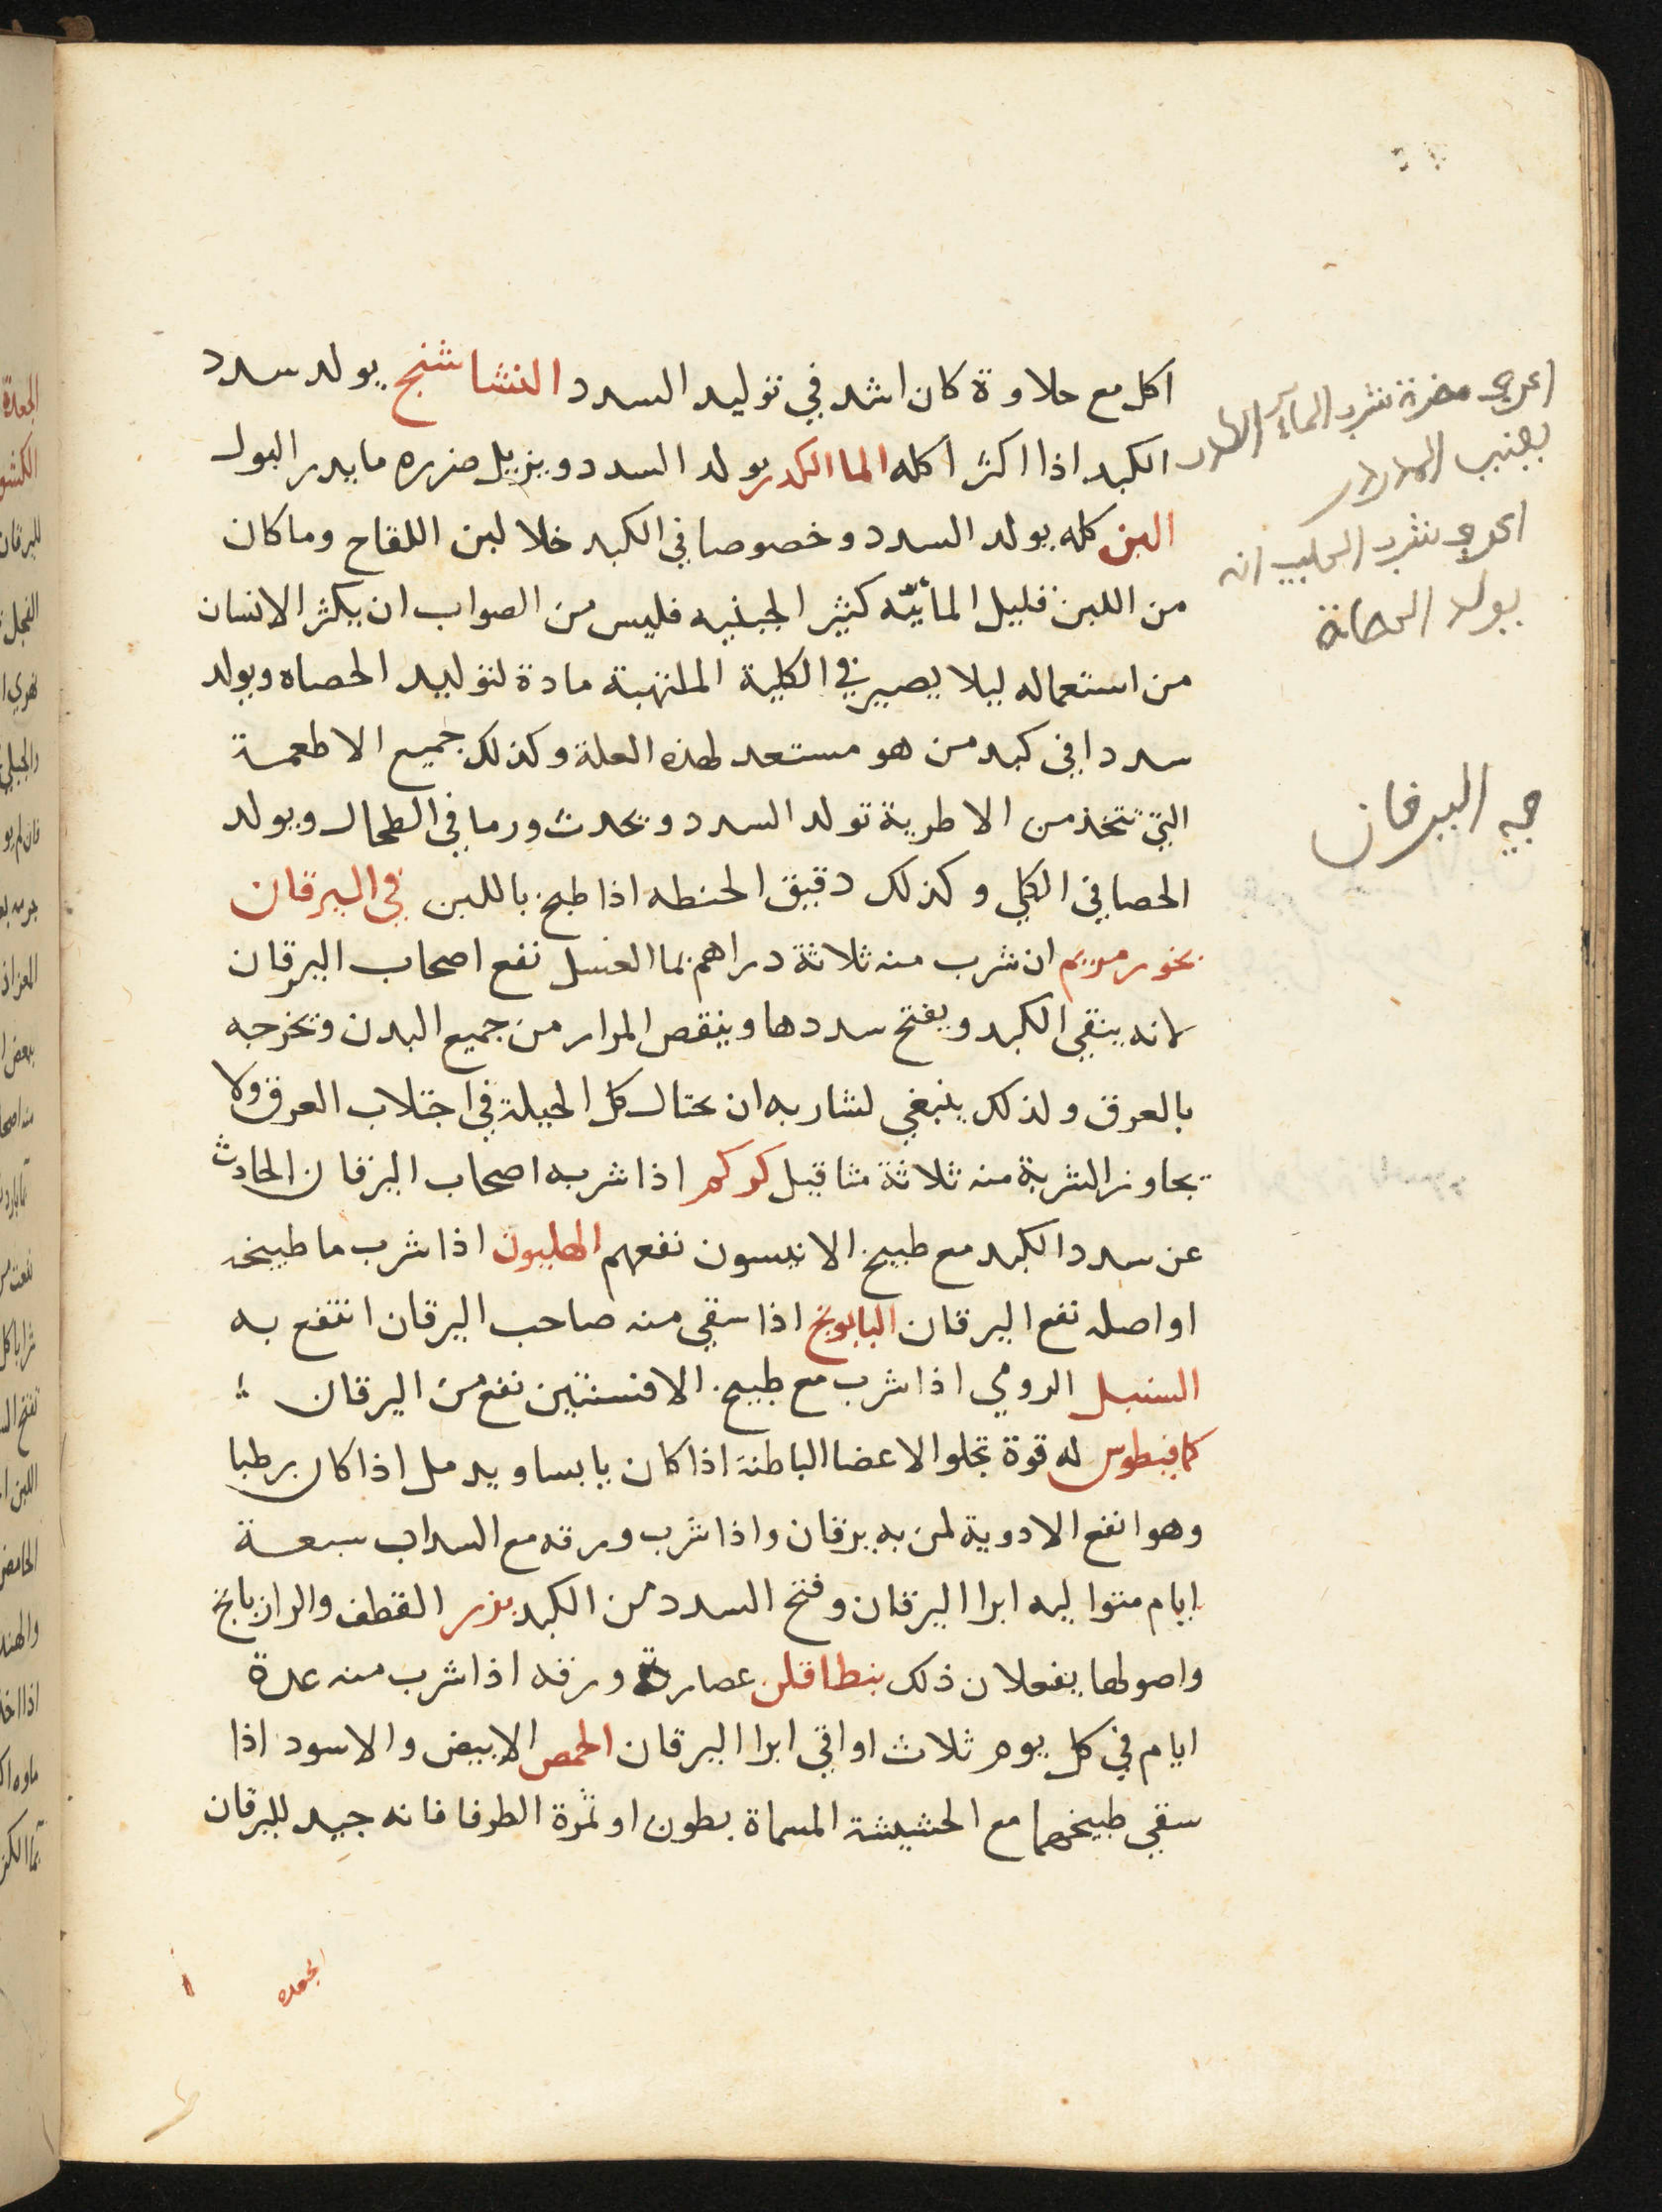 اكل مع حلاوة كان اشد في توليد السدد النشاشنج يولد سدد
الكبد اذا اكثر اكله الما الكدر يولد السدد ويزيل ضرره ما يدر البول
البن كله يولد السدد وخصوصا في الكبد خلا لبن اللقاح وما كان
من اللبن قليل المائيه كثير الجبنيه فليس من الصواب ان يكثر الانسان
من استعماله ليلا يصير في الكلية الملتهبة مادة لتوليد الحصاه ويولد
سددا في كبد من هو مستعد لهذه العلة وكذلك جميع الاطعمة
التي تتخذ من الاطرية تولد السدد ويحدث ورما في الطحال ويولد
الحصا في الكلي وكذلك دقيق الحنطه اذا طبخ باللبن في اليرقان
بخور مريم ان شرب منه ثلاثة دراهم بما العسل نفع اصحاب اليرقان
لانه ينقي الكبد ويفتح سددها وينقص المرار من جميع البدن ويخرجه
بالعرق ولذلك ينبغي لشاربه ان يحتال كل الحيلة في اجتلاب العرق ولا
يجاوز الشربة منه ثلاثة مثاقيل كركم اذا شربه اصحاب اليرقان الحادث
عن سدد الكبد مع طبيخ الانيسون نفعهم الهليون اذا شرب ما طبيخه
او اصله نفع اليرقان البابونج اذا سقي منه صاحب اليرقان انتفع به
السنبل الرومي اذا شرب مع طبيخ الافسنتين نفع من اليرقان
كمافيطوس له قوة تجلوا الاعضا الباطنة اذا كان يابسا ويدمل اذا كان رطبا
وهو انفع الادوية لمن به يرقان واذا شرب ورقه مع السداب سبعة
ايام متواليه ابرا اليرقان وفتح السدد من الكبد بزر القطف والرازيانج
واصولها يفعلان ذلك بنطافلن عصارة ورقه اذا شرب منه عدة
ايام في كل يوم ثلاث اواقي ابرا اليرقان الحمص الابيض والاسود اذا
سقي طبيخهما مع الحشيشة المسماة بطون او ثمرة الطرفا فانه جيد لليرقان
الجعده
مضرة شرب المآء
شرب الحليب انه
يولد الحصاة
اليرقان